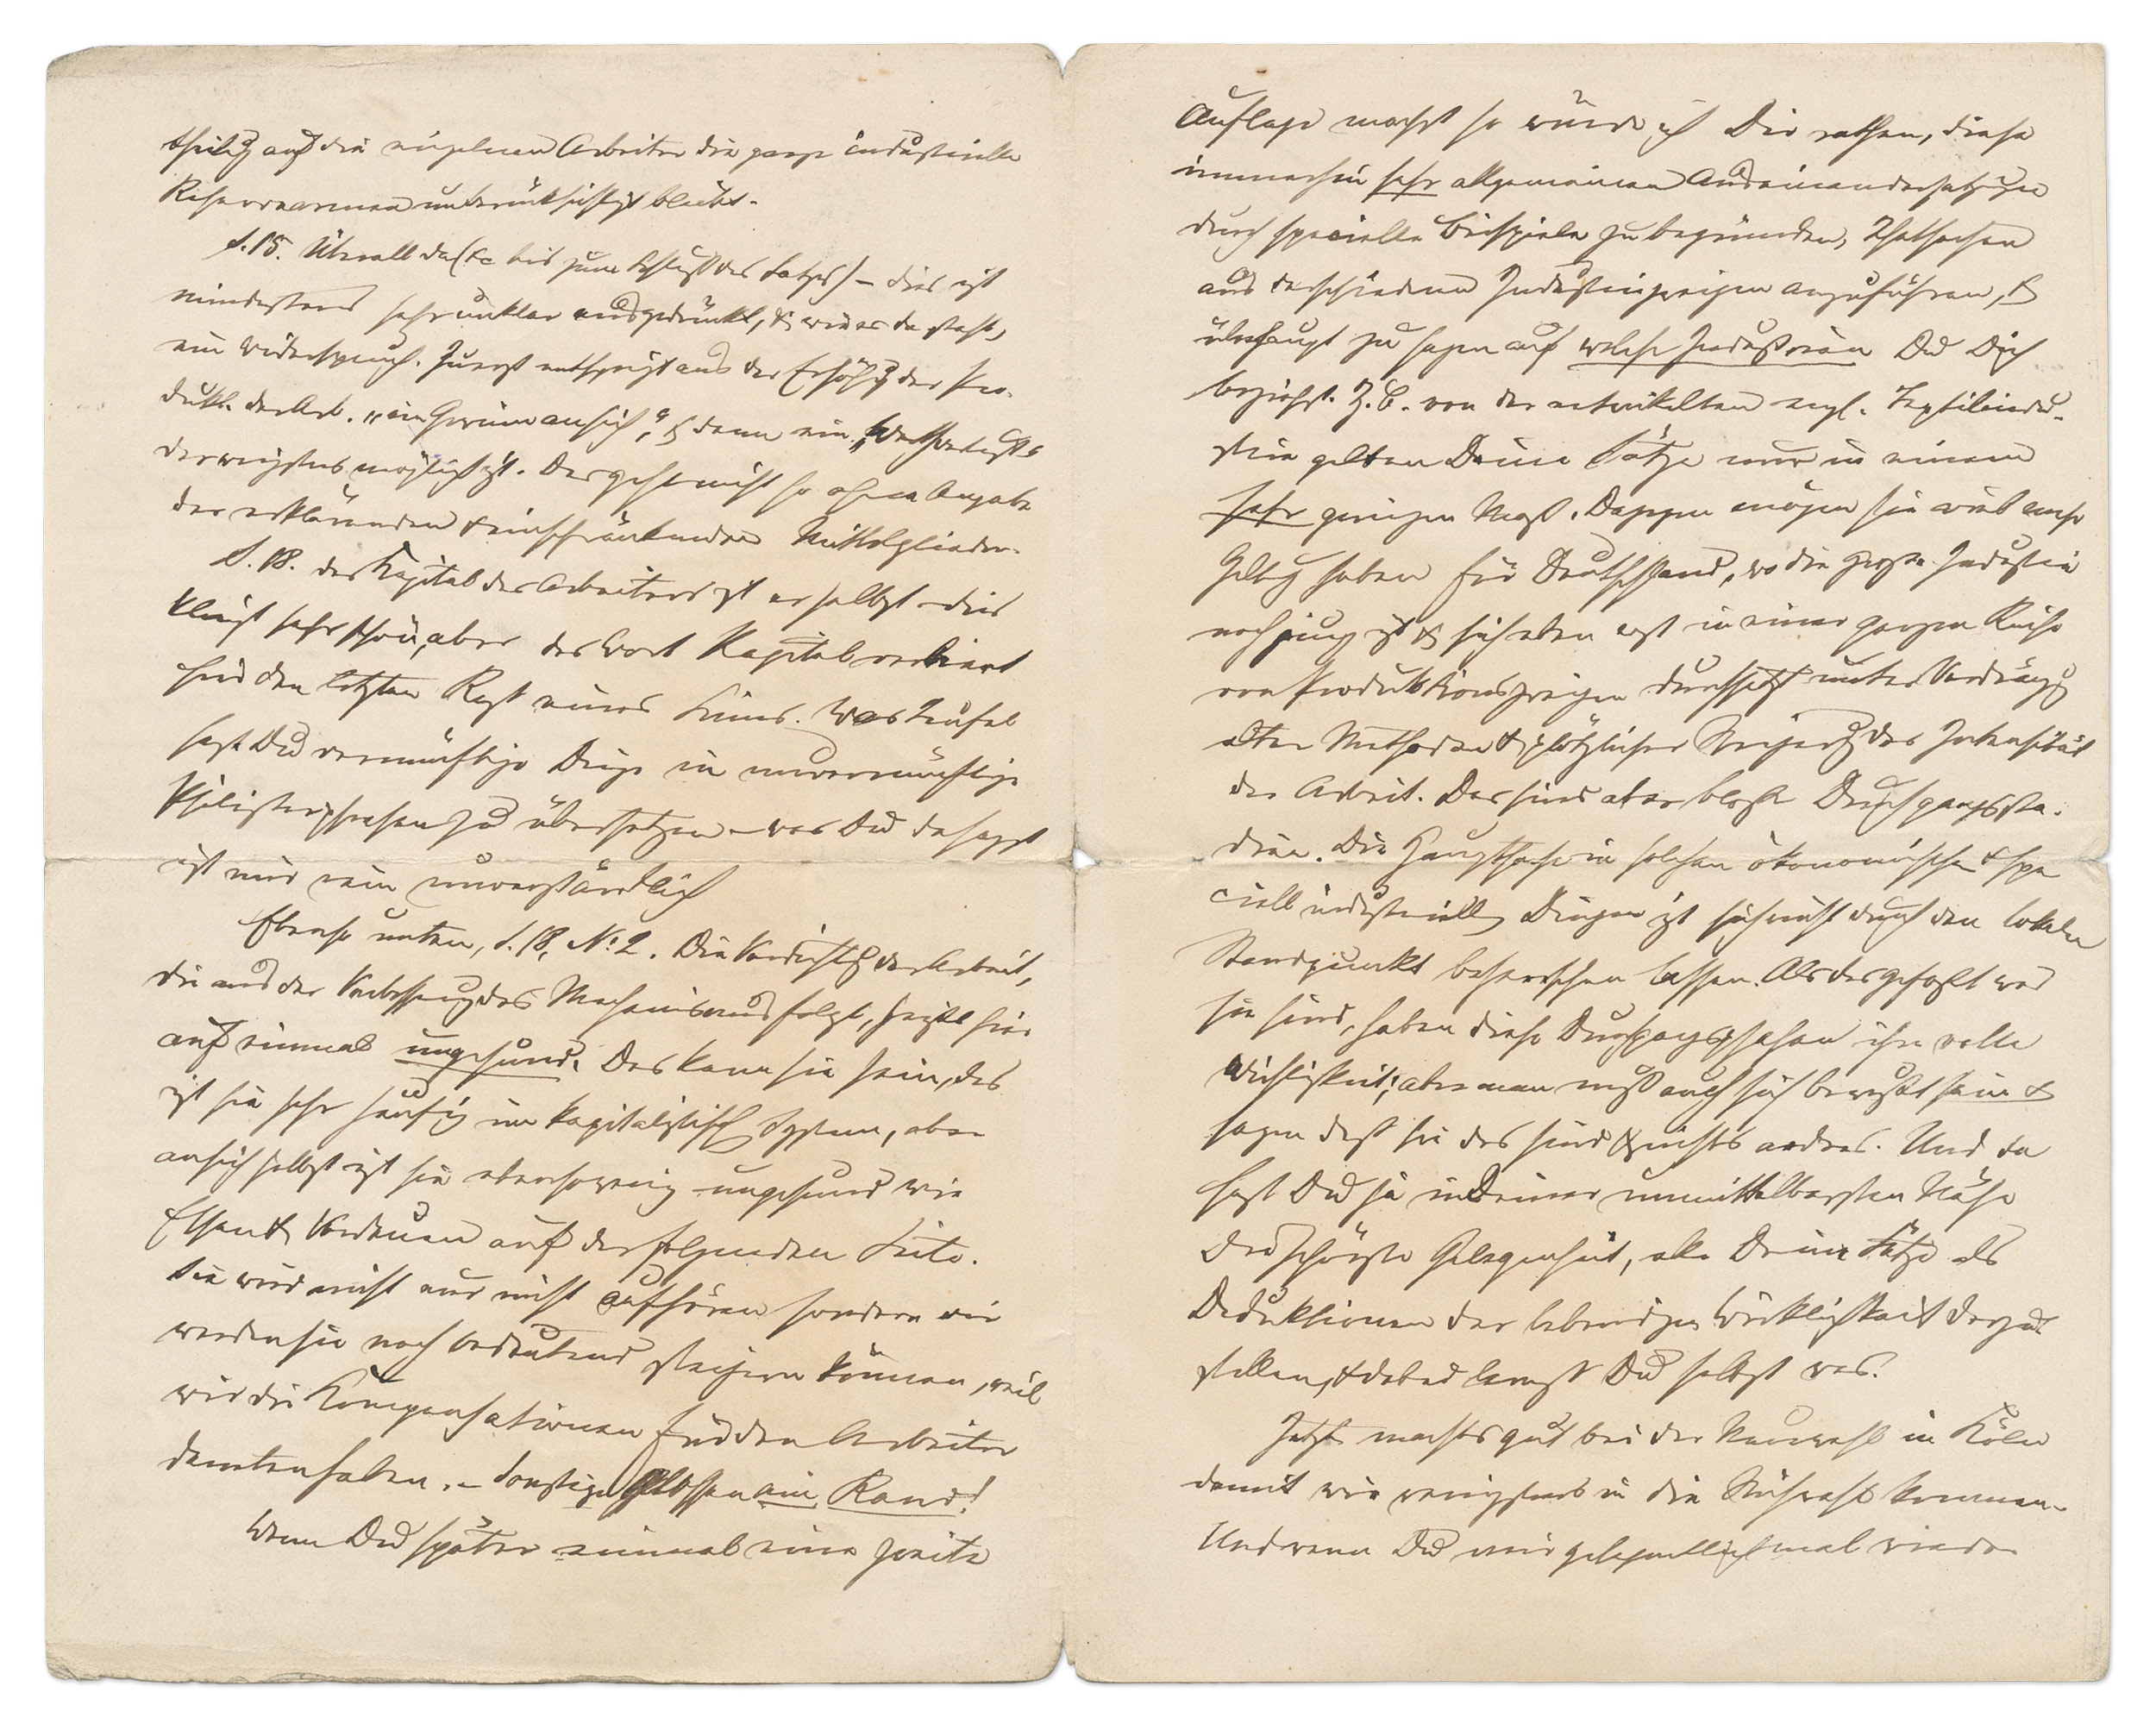 theilg auf die einzelnen Arbeiter die ganze industrielle
Reservearmee unberücksichtigt bleibt.
S. 15. Überall da (&c bis zum Schluß des Satzes) – dies ist
mindestens sehr unklar ausgedrückt, & wie es da steht,
ein Widerspruch. Zuerst entspringt aus der Erhöhg der Pro-
dukt. der Arb. „ein Gewinn an sich“, & dann ein „Werthverlust“
der wenigstens möglich ist. Das geht nicht so ohne Angabe
der erklärenden & einschränkenden Mittelglieder.
S. 18. das Kapital des Arbeiters ist er selbst – dies
klingt sehr schön, aber das Wort Kapital verliert
hier den letzten Rest eines Sinns. Was Teufel
hast Du vernünftige Dinge in unvernünftige
Philisterphrasen zu übersetzen – was Du da sagst
ist mir rein unverständlich
Ebenso unten, S. 18, No. 2. Die Verdichtg der Arbeit,
die aus der Verbesserung des Mechanismus folgt, heißt hier
auf einmal ungesund. Das kann sie sein, das
ist sie sehr häufig im kapitalistisch System, aber
an sich selbst ist sie ebensowenig ungesund wie
Essen & Verdauen auf der folgenden Seite.
Sie wird nicht nur nicht aufhören sondern wir
werden sie noch bedeutend steigern können, weil
wir die Kompensationen für den Arbeiter
daneben haben. – Sonstige Glossen am Rand!
Wenn Du später einmal eine zweite
Auflage machst so würde ich Dir rathen, diese
immerhin sehr allgemeinen Auseinandersetzungen
durch specielle Beispiele zu begründen, Thatsachen
aus verschiedenen Industriezweigen anzuführen, &
überhaupt zu sagen auf welche Industrien Du Dich
beziehst. Z. B. von der entwickelten engl. Textilindu-
strie gelten Deine Sätze nur in einem
sehr geringen Maß. Dagegen mögen sie viel mehr
Geltg haben für Deutschland, wo die große Industrie
noch jung ist & sich eben erst in einer ganzen Reihe
von Produktionszweigen durchsetzt unter Verdrängg
alter Methoden & plötzlicher Steigerg der Intensität
der Arbeit. Das sind aber bloße Durchgangssta-
dien. Die Hauptsache in solchen ökonomischen & spe
ciell industriellen Dingen ist sich nicht durch den lokalen
Standpunkt beherrschen lassen. Als das gefaßt was
sie sind, haben diese Durchgangsphasen ihre volle
Wichtigkeit; aber man muß auch sich bewußt sein &
sagen daß sie das sind & nichts andres. Und da
hast Du ja in Deiner unmittelbarsten Nähe
die schönste Gelegenheit, alle Deine Sätze als
Deduktionen der lebendigen Wirklichkeit darzu
stellen, & dabei lernst Du selbst was.
Jetzt machts gut bei der Neuwahl in Köln
damit wir wenigstens in die Stichwahl kommen.
Und wenn Du mir gelegentlich mal wieder